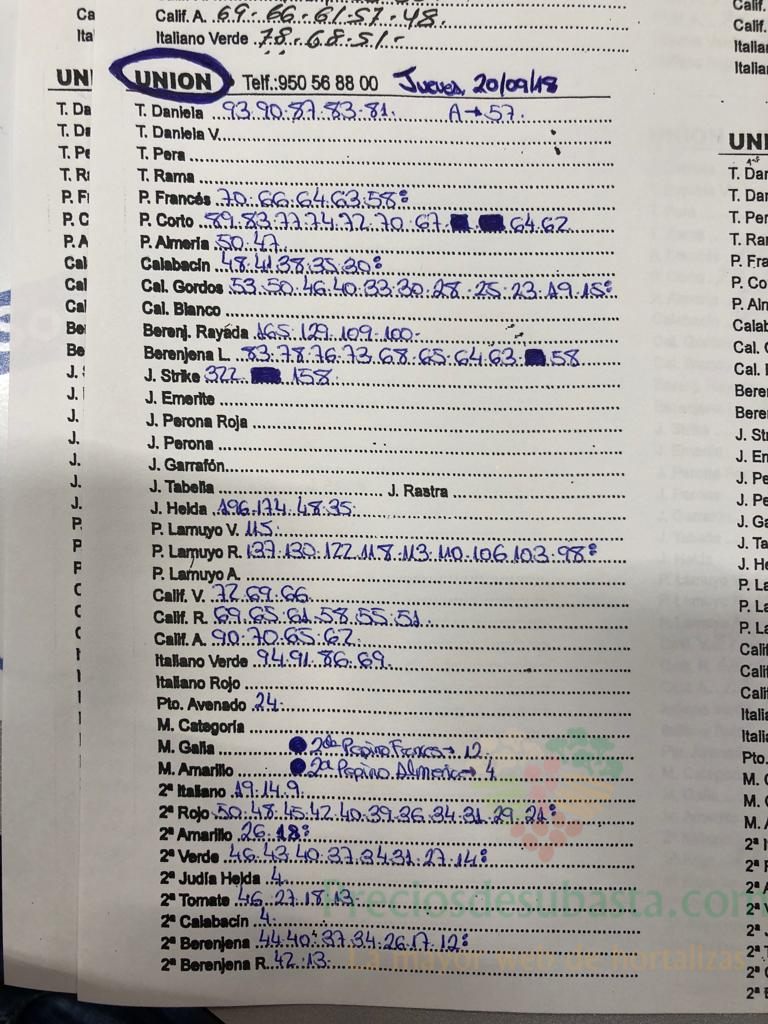 Ca
Calif. A. 69.66.61.57.48.
Ita
Italiano Verde 78.68.51.
UNION Telf.:950 56 88 00 Jueves, 20/09/18
T. Daniela 93.90.87.83.81. A→57.
T. Daniela V.
T. Pera
T. Rama
P. Francés 70.66.64.63.58:
P. Corto 89.83.77.74.72.70.67. 64.62
P. Almería 50.47.
Calabacín 48.41.38.35.30:
Cal. Gordos 53.50.46.40.33.30.28.25.23.19.15:
Cal. Blanco
Berenj. Rayada 165.129.109.100.
Berenjena L. 83.78.76.73.68.65.64.63. 58
J. Strike 322. 158.
J. Emerite
J. Perona Roja
J. Perona
J. Garrafón
J. Tabella J. Rastra
J. Helda 196.174.48.35.
P. Lamuyo V. 115.
P. Lamuyo R. 137.130.122.118.113.110.106.103.98:
P. Lamuyo A.
Calif. V. 72.69.66.
Calif. R. 69.65.61.58.55.51.
Calif. A. 90.70.65.62.
Italiano Verde 94.91.86.69.
Italiano Rojo
Pto. Avenado 24.
M. Categoría
M. Galia 2ª Pepino Frances→ 12.
M. Amarillo 2ª Pepino Almeria→ 4
2ª Italiano 19.14.9.
2ª Rojo 50.48.45.42.40.39.36.34.31.29.21:
2ª Amarillo 26.18:
2ª Verde 46.43.40.37.34.31.27.14:
2ª Judía Helda 4.
2ª Tomate 46.27.18.13.
2ª Calabacín 4.
2ª Berenjena 44.40.37.34.26.17.12:
2ª Berenjena R. 42.13.
Preciosdesubasta.com
La mayor web de hortalizas